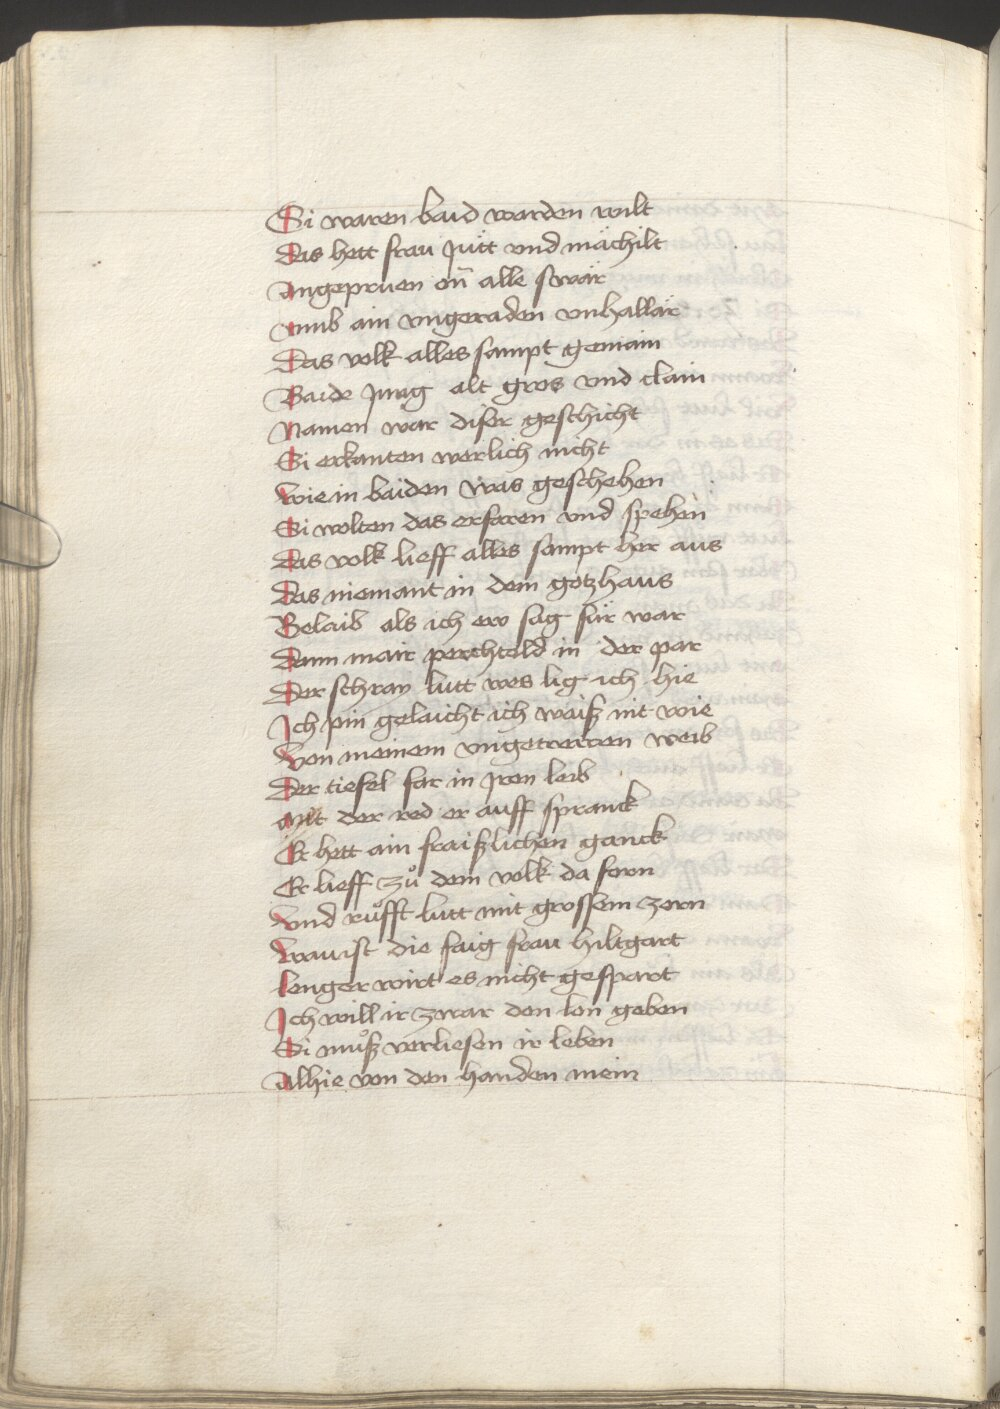 Si waren baid worden wilt
Das hett frau Jütt vnd mächilt
Angepruen on̄ alle swär
Vmb ain vngeraden vnhallär
Das volk alles sampt gemain
Baide Jung alt gros vnd clain
Namen war diser geschicht
Si erkanten werlich nicht
Wie in baiden was geschehen
Si wolten das erfaren vnd spehen
Das volk lieff alles sampt her aus
Das niemant in dem gotzhaus
Belaib als ich ew sag für war
Dann mair perchtold in der par
Der schray lutt wes lig ich hie
Ich pin gelaicht ich waiß nit wie
Von meinem vngetrewen weib
Der tiefel far in Iren leib
Mit der red er auff spranck
Er hett ain fraißlichen ganck
Er lieff zů dem volk da forn
Vnd růfft lutt mit grossem zorn
Wau ist die faig frau hiltgart
Lenger wirt es nicht gespart
Ich will ir zwar den lon geben
Si můß verliesen ir leben
Alhie von den handen mein